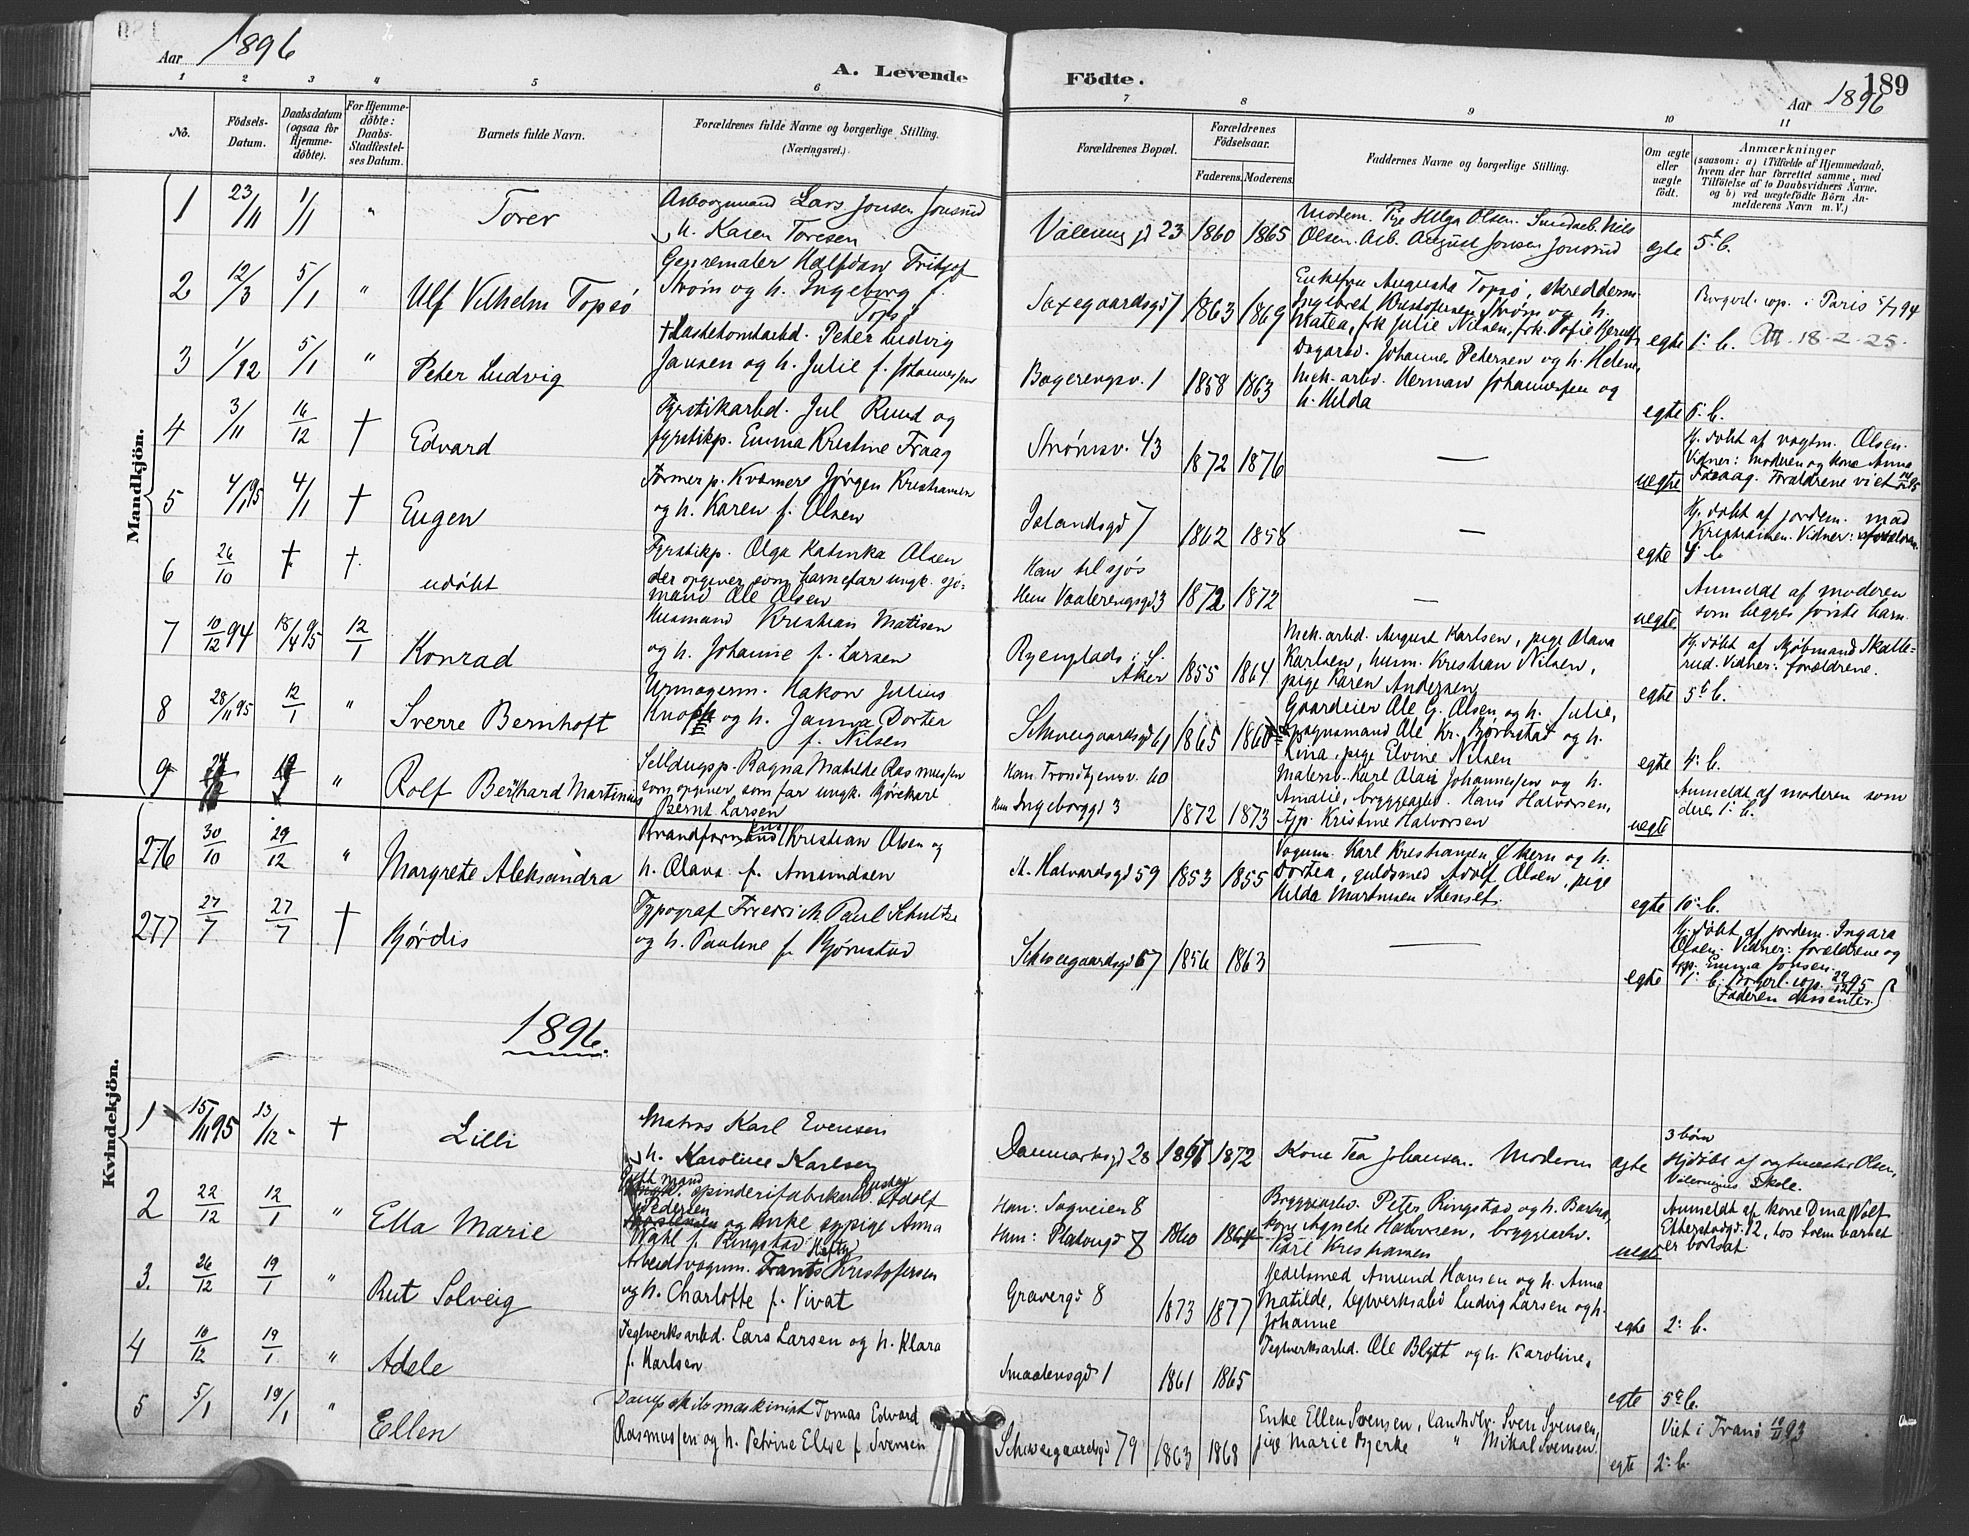 Aar 1896
A. Levende Födte.
189
Aar 1896
1 2 3 " 5 6 7 8 9 10 11
No.
Födsels-Datum.
Daabsdatum (ogsaa för Hjemme-döbte).
For Hjemme-döbte: Daabs-Stadfæstel-ses Datum.
Barnets fulde Navn.
Forældrenes fulde Navne og borgerlige Stilling. (Næringsvei.)
Forældrenes Bopæl.
Forældrenes Födselsaar.
Faderens. Moderens.
Faddernes Navne og borgerlige Stilling.
Om ægte eller uægte födt.
Anmærkninger
(saasom: a) i Tilfælde af Hjemmedaab,
hvem der har forrettet samme, med
Tilföielse af to Daabsvidners Navne,
og b) ved uægtefödte Börn An-
melderens Navn m. V.)
Mandkjön.
1 23/11 1/1 " Torer
Lars Jonsen Jonsrud
h. Karen Toresen
Vålereng gd 23 1860 1865
Modern. Pige Helga Olsen. Nils
Olsen. Arb. August Jonsen Jonsrud
egte 5t b.
2 12/3 5/1 " Ulf Vilhelm Topsö
Genremaler Halfdan Fritjof
Ström og h. Ingeborg f.
Topsö
Saxegaardsgd 7 1863 1869
Enkefru Augusta Topsö, skredderm.
Ingebret Kristofersen Ström og h.
Matea, frk Julie Nilsen, frk. Sofie
egte 1ª b.
Borgerl. cop. i Paris 5/7 94
18-2-25.
3 1/12 5/1 " Peter Ludvig
Peter Ludvig
Jansen og h. Julie f. Johannessen
Bøgerengsv. 1 1858 1863
Dagarb. Johannes Petersen og h. Helene,
Mek. arb. Herman Johannessen og
h. Hilda
egte 6t b.
4 3/11 16/12 † Edvard
Fyrstikarbd. Jul Ruud og
fyrstikp. Emma Kristine Fraag
Strömsv. 43 1872 1876 —
uegte
Hj. döbt af vagtm. Olsen.
Vidner: moderen og kone Anna
Fraag. Forældrene viet
5 4/1 95 4/1 † Eugen
Jørgen Kristiansen
og h. Karen f. Olsen
Islandsgd 7 1862 1858 —
egte
Hj. döbt af jordem. mad
Kristiansen. Vidner: forældren.
4 b
6 26/10 † † udöbt
Fyrstikp. Olga Katinka Olsen
der opgiver som barnefar ungk. sjö-
mand Ole Olsen
Han til sjös
Hun Vaalerengsgd 3 1872 1872 —
uegte
Anmeldt af moderen
som begges förste barn.
7 10/12 94 18/4 95 12/1 Konrad
Husmand Kristian Matisen
og h. Johanne f. Larsen
Ryenplads i S.
Aker 1855 1864
Mek. arbd. August Karlsen, pige Olava
Karlsen, husm. Kristian Nilsen,
pige Karen Andersen
egte 5t b.
Hj. döbt af Kjöbmand Skatte-
rud. Vidner: forældrene.
8 28/11 95 12/1 " Sverre Bernhoft
Urmagerm. Hakon Julius
og h. Janna Dortea
f. Nilsen
Schweigaardsgd 61 1865
Gaardeier Ole G. Olsen og h. Julie,
Vognmand Ole Kr. Björnstad og h.
Lina, pige Elvine Nilsen
egte 4ª b.
9 " Rolf Bernhard Martinus
Ragna Matilde Rasmussen
som opgiver som far ungk.
Bernt Larsen
Han Trondhjemsv. 60
Hun Ingeborggd 3 1872 1873
Malersv. Karl Olai Johannessen og h.
Amalie, bryggearb. Hans Halvorsen,
Kristine Halvorsen
uegte
Anmeldt af moderen som
deres 1ª b.
276 30/10 29/12 " Margrete Aleksandra
Kristian Olsen og
h. Olava f. Amundsen
St. Halvardsgd 59 1853 1855
Vognm. Karl Kristiansen Økern og h.
Dortea, guldsmed Adolf Olsen, pige
Hilda Martinsen Stenset.
egte 10ª b.
277 27/7 27/7 † Hjördis
Typograf Friedrich Paul Schultze
og h. Pauline f. Björnstad
Schweigaardsgd 67 1856 1863 —
egte
Hj. döbt af jordem. Ingara
Olsen. Vidner: forældrene og
Emma Jonsen.
b. Borgerl. cop. 29/12 95
(Faderen dissenter)
1896.
Kvindekjön.
1 15/11 95 13/12 † Lilli
Matros Karl Evensen
h. Karoline Karlsen
Danmarksgd 28 1872
Kone Tea Johansen. Modern
egte
3 börn
Hjdöbt af vagtmester Olsen,
Vålerengens Skole.
2 22/12 12/1 " Ella Marie
spinderifabrikarb. Adolf
Pedersen
og Enke sypige Anna
Wahl f. Ringstad
Han: Sagveien 8
Hun: Platougd 7 1860 1864
Bryggearb. Peter Ringstad og h. Barbra
Agnete Halvorsen, bryggearb.
Karl Kristiansen
uegte
Anmeldt af kone Dina Wolf
Etterstadgd. 12, hos hvem barnet
er bortsat
3. 26/12 19/1 " Rut Solveig
Arbeidsvognm. Frants Kristofersen
og h. Charlotte f. Vivat
Gravergd 8 1873 1877
Gjedelsmed Amund Hansen og h. Anna
Matilde, teglverksarbd Ludvig Larsen og h.
Johanne
egte 2ª b.
4 10/12 19/1 " Adele
Teglverksarbd. Lars Larsen og h. Klara
f. Karlsen
Smaalensgd 1 1861 1865
Teglverksarbd. Ole Blytt og h. Karoline,
egte 5ª b.
5 5/1 19/1 " Ellen
Dampskibsmaskinist Tomas Edvard
Rasmussen og h. Petrine Elise f. Svensen
Schweigaardsgd 79 1863 1868
Enke Ellen Svensen, landhdlr. Sven Svensen,
pige Marie Bjerke " Mikal Svensen.
egte 2ª b.
Viet i Tranö 10/11 93